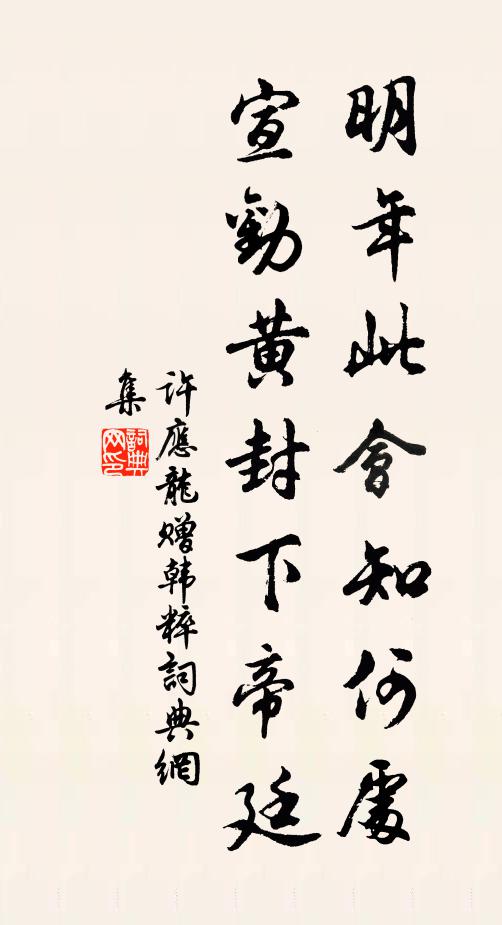 明年此會知何處
宣勸黄封下帝廷
許應龍贈韩粹詞典網
集
詞典
网印